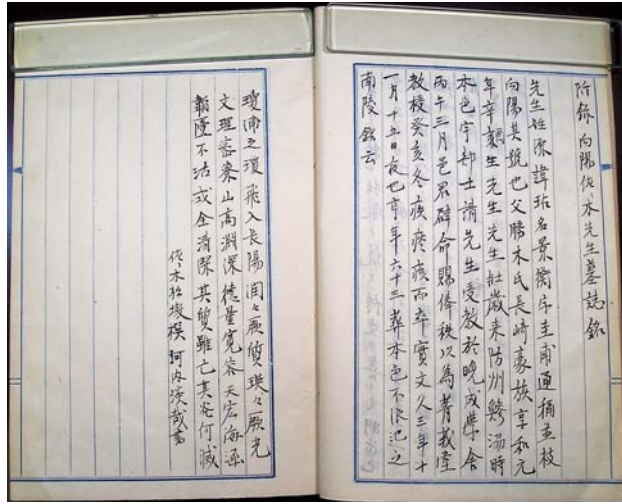 附録 向陽佐々木先生墓誌銘
先生姓源諱玷名景衡字圭甫通稱並枝
向陽其號也父勝木氏長崎豪族享和元
年辛酉生先生先生壮歳来防州鯵湯時
本邑宇部士請先生受教於晩成學舎
丙午三月邑君辟命賜俸秩以為菁莪堂
教授癸亥冬疾瘧疾而卒實文久三年十
一月十五日夜也享年六十三葬本邑不深迫之
南陵銘云
瓊浦之瓊飛入長陽潤々厥質瑛々厥光
文理密察山高淵深徳量寛容天宏海涵
韜匱不沽或全清潔其質雖亡其光何滅
佐々木松墩撰 河内茂哉書